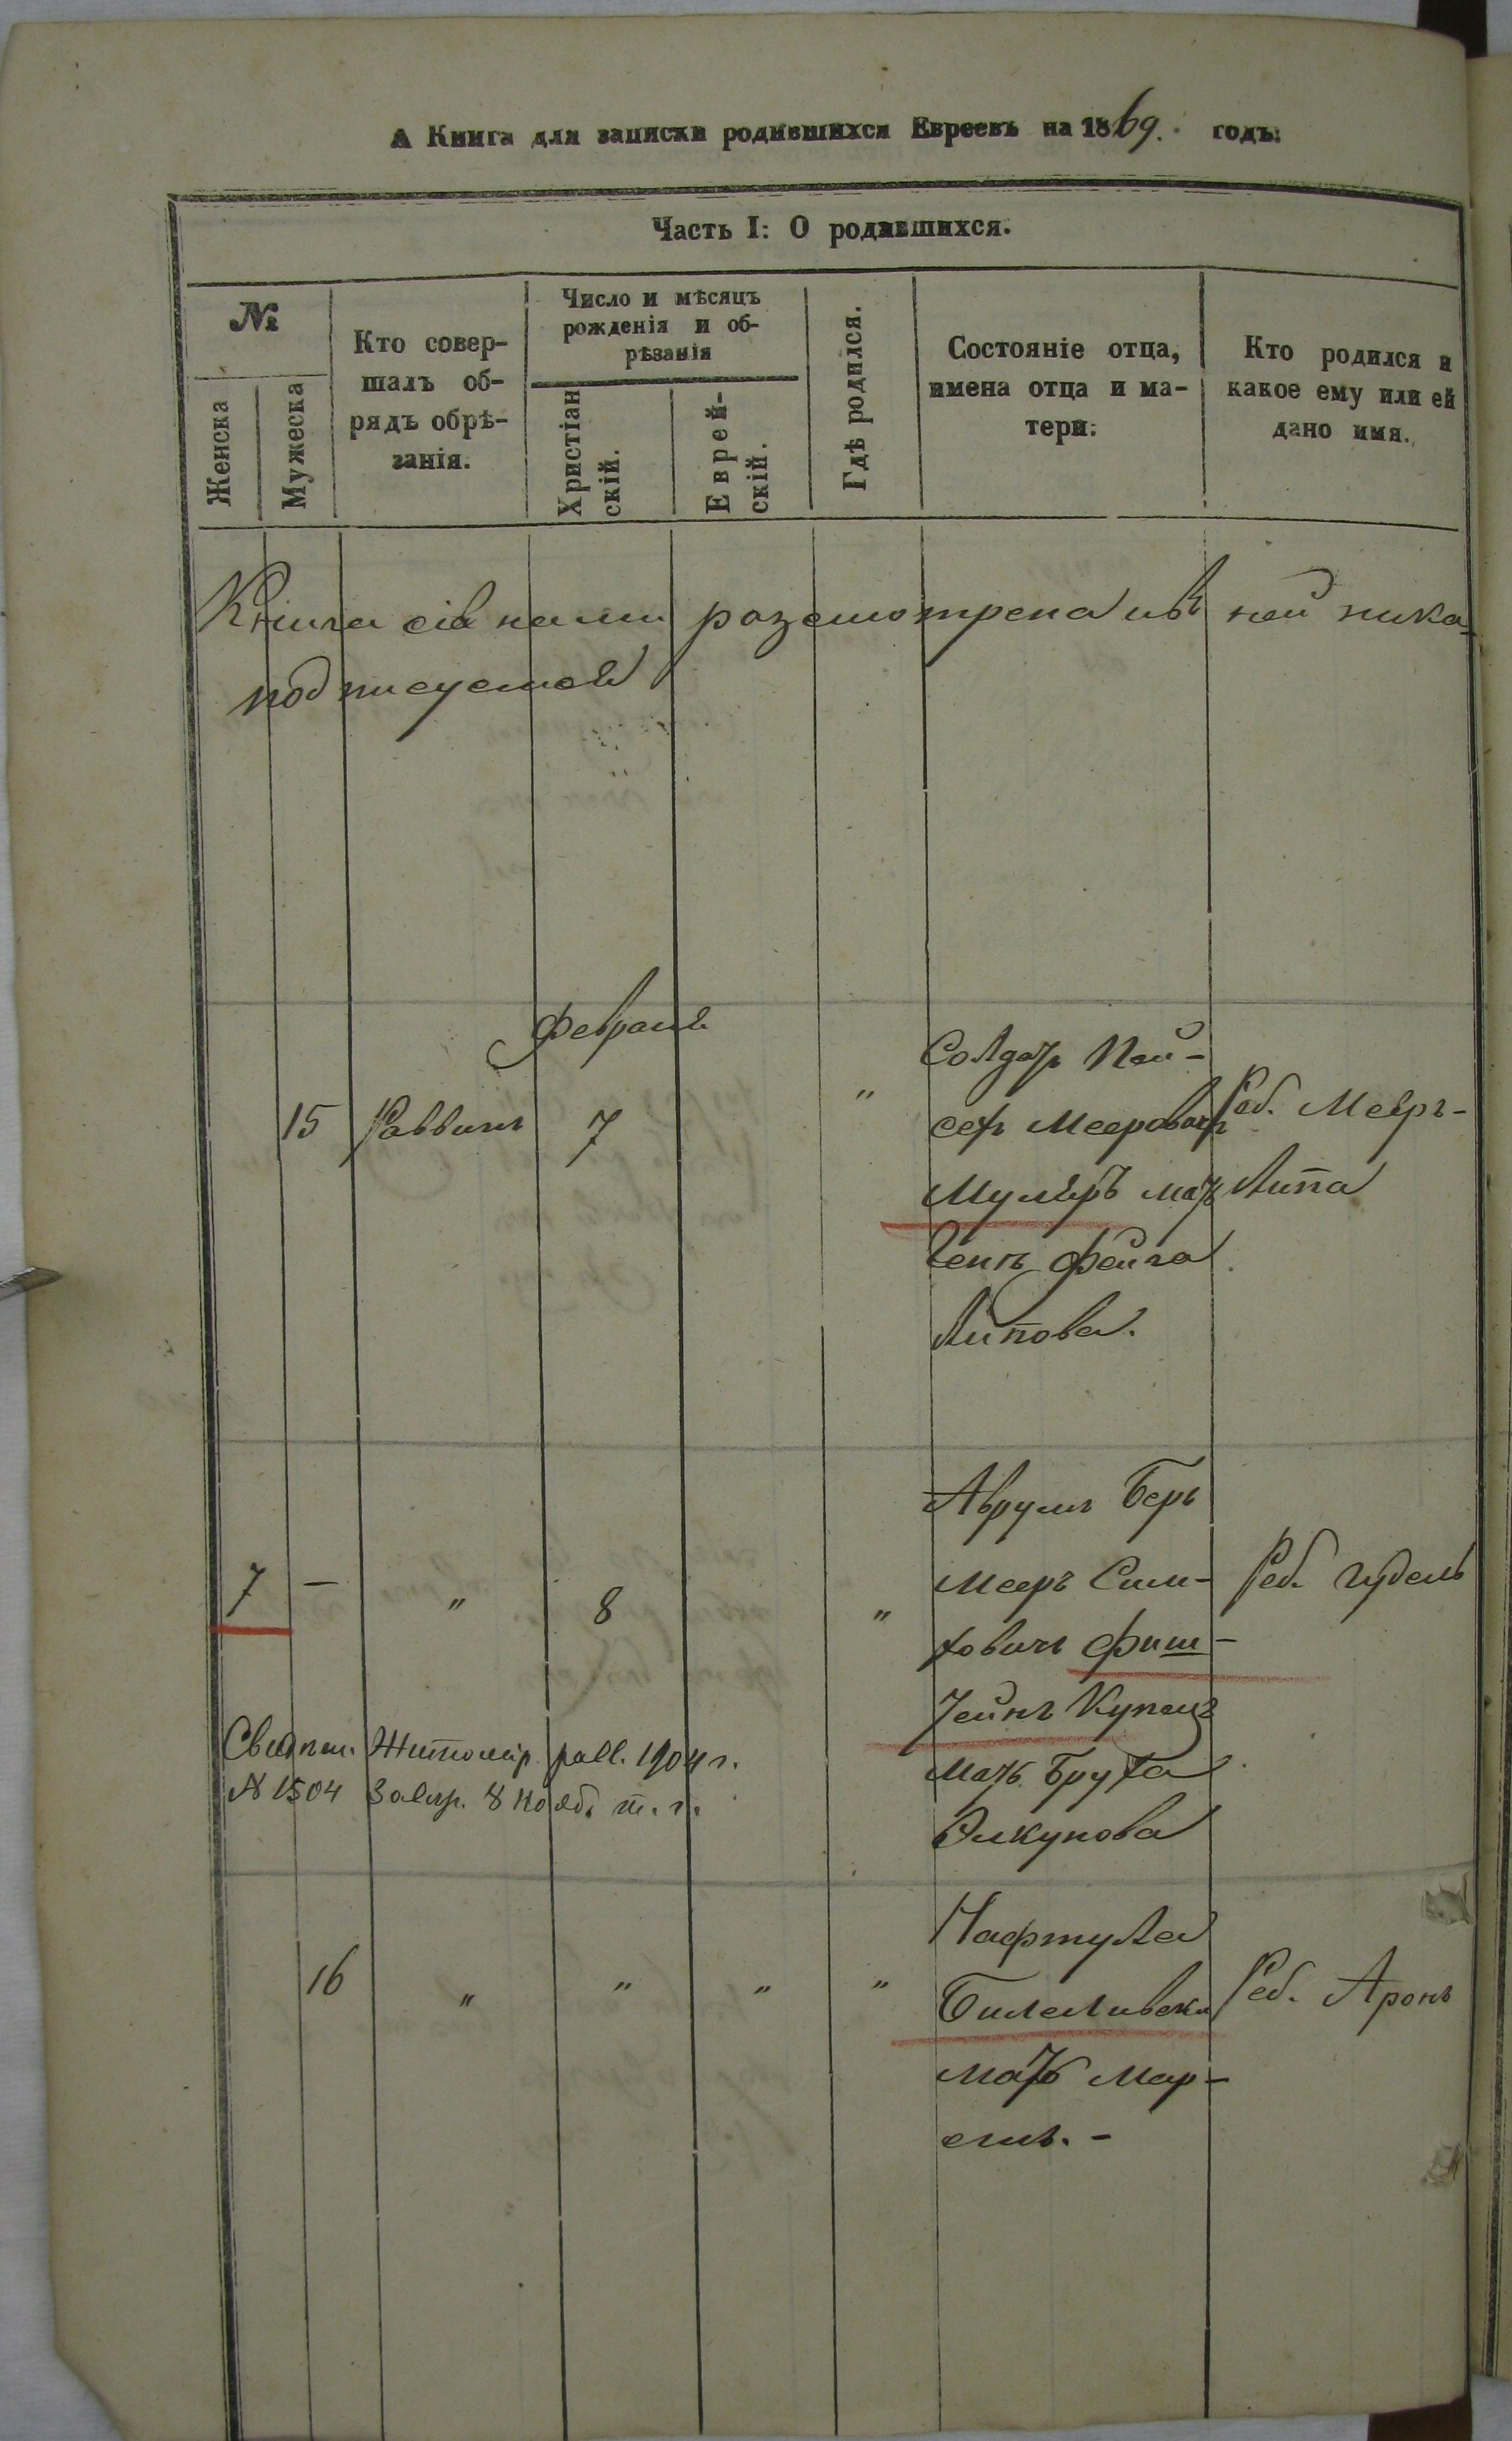 А Книга для записки родившихся Евреевъ на 1869. годъ:
Часть I: О родившихся.
№
Женска
Мужеска
Кто совер-
шалъ об-
рядъ обрѣ-
занія.
Число и мѣсяцъ
рожденія и об-
рѣзанія
Христіан
скій.
Еврей-
скій.
Гдѣ родился.
Состояніе отца,
имена отца и ма-
тери:
Кто родился и
какое ему или ей
дано имя.
Книга сія нами разсмотрена ивъ ней ника-
подписуемой
Февраля
15 Раввинъ 7 "
Солдатъ Пей-
сехъ Мееровичъ
Мулѣръ мать
Фейга
Липова.
Реб. Меѣръ-
Липа
7 — " 8 "
Аврумъ Беръ
Мееръ Сим-
ховичъ Фиш-
тейнъ Купецъ
мать Бруха
Элкунова
Реб. Гудель
Свидт. Житомір. равв. 1904 г.
№ 1504 8 Нояб. т. г.
16 " " " "
Нафтула
Билеливски
мать Мар-
Реб. Аронъ